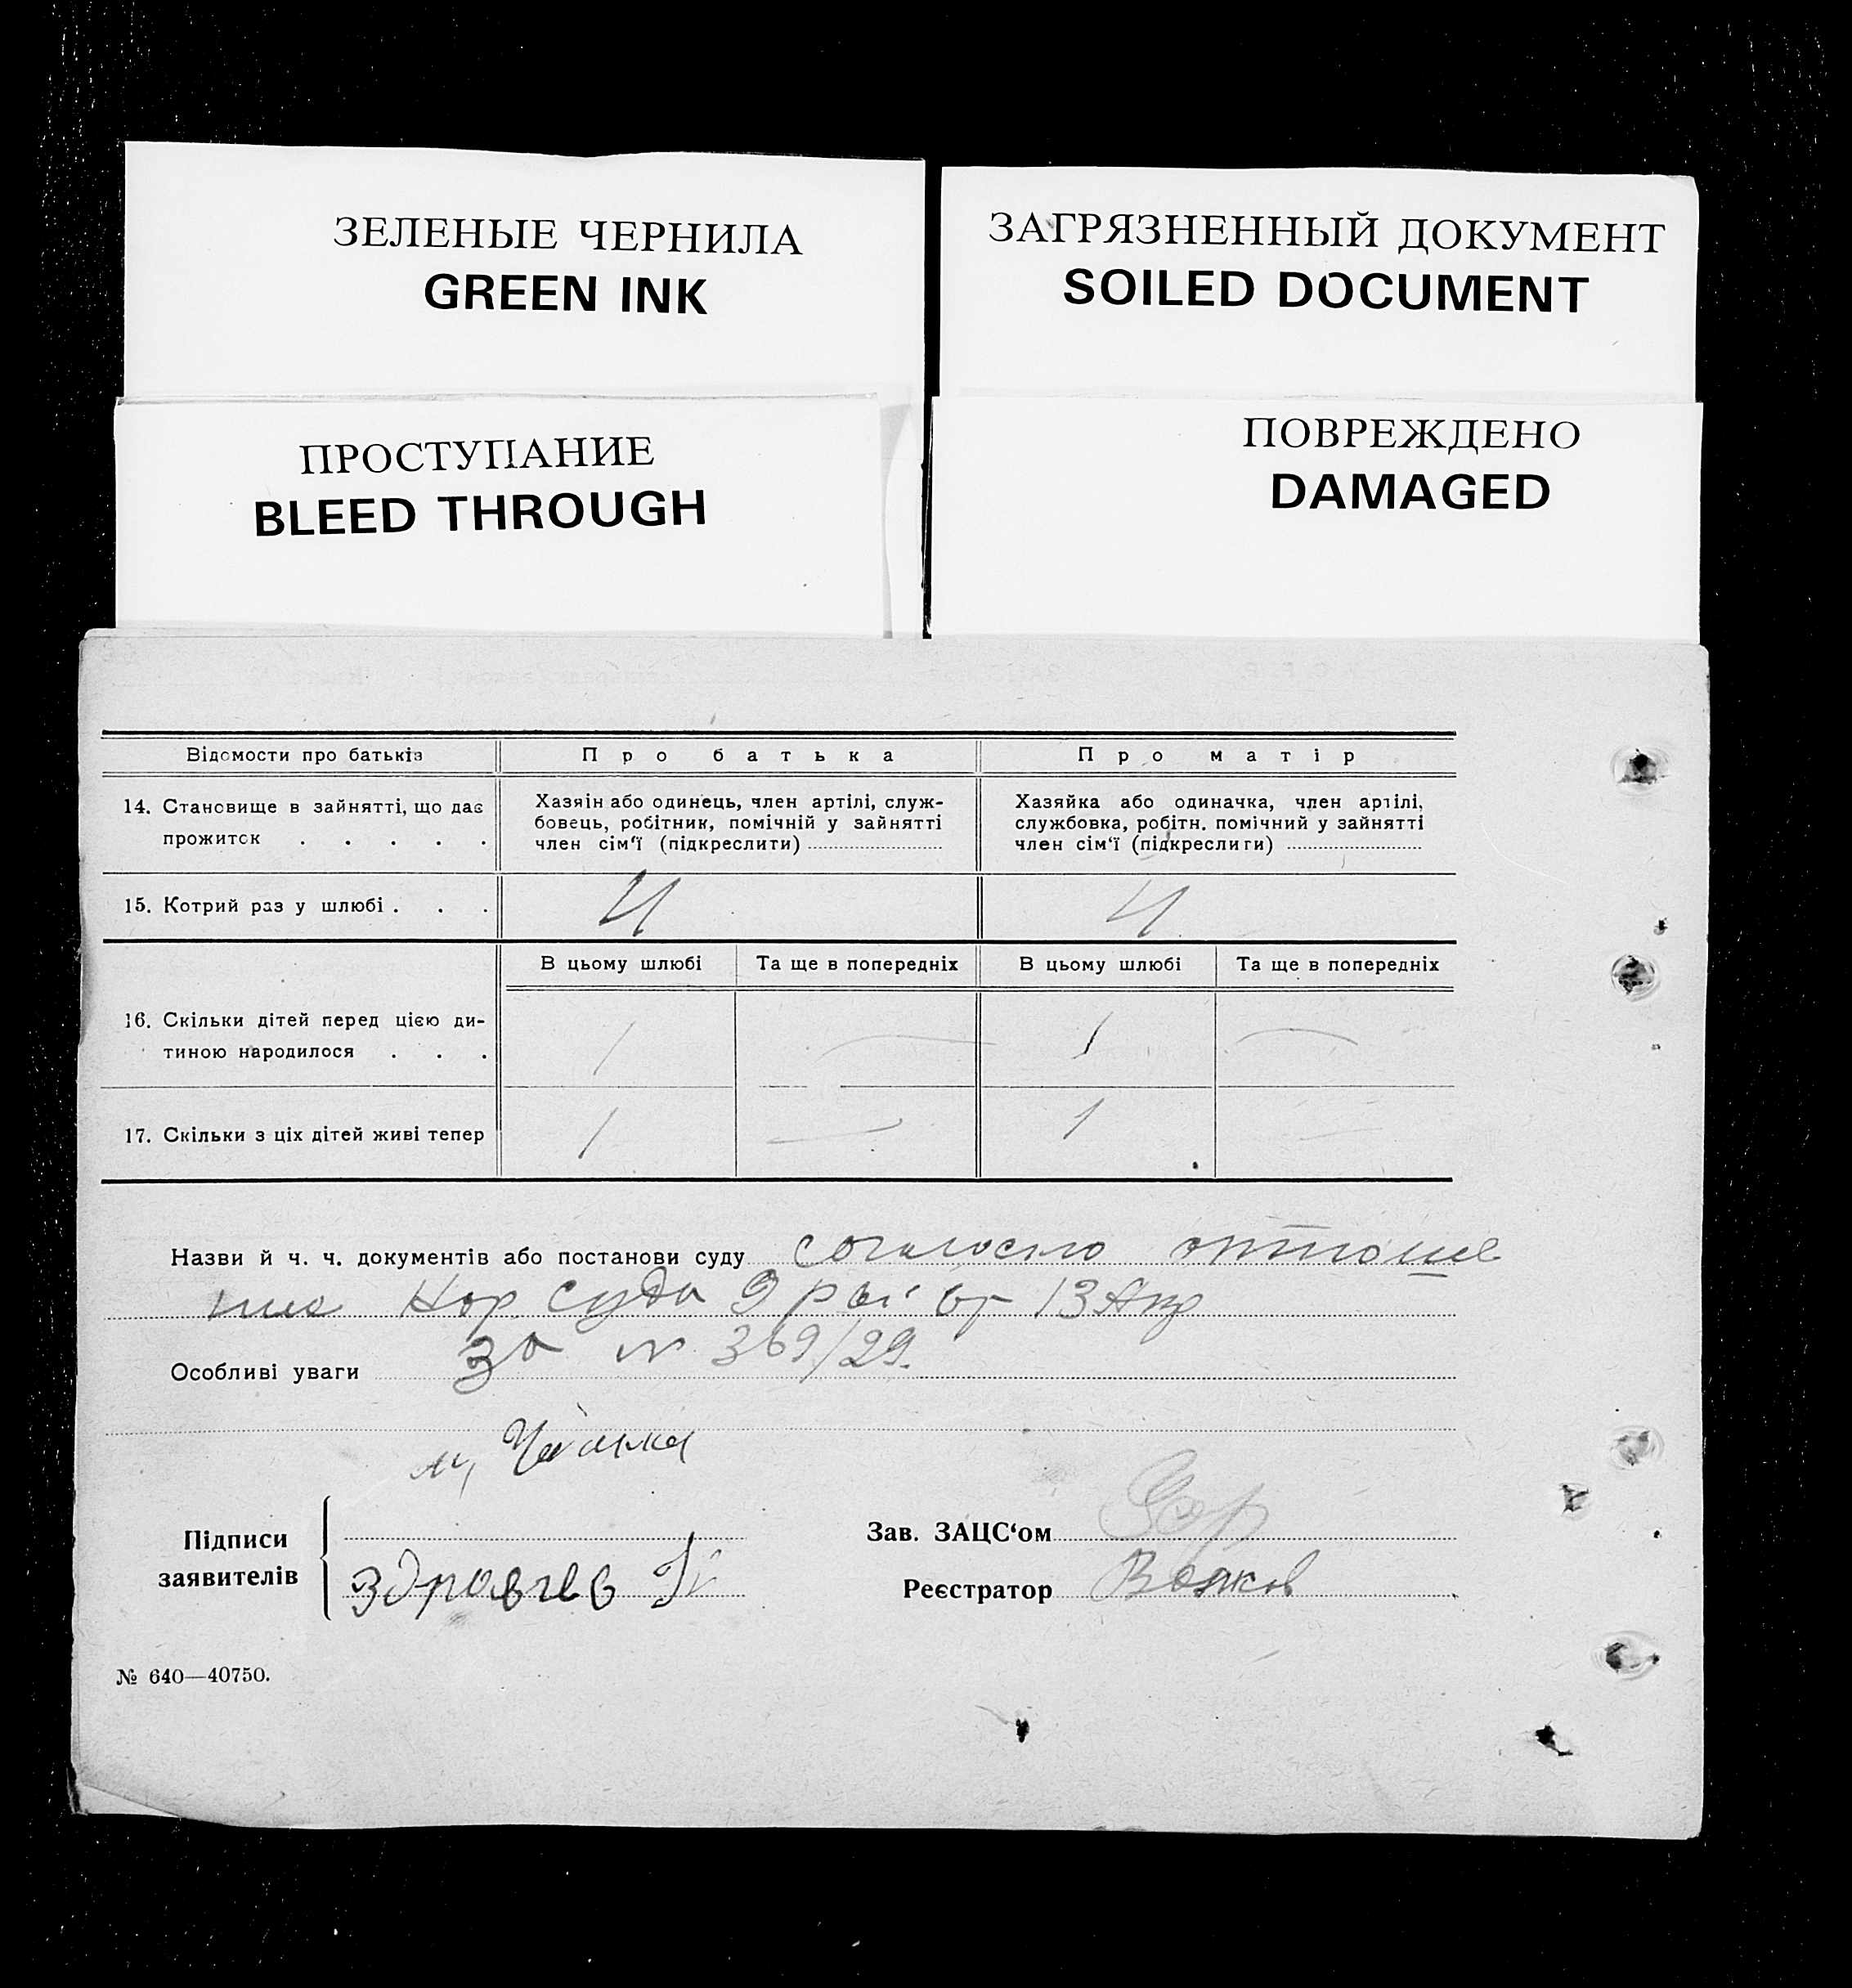 ЗЕЛЕНЫЕ ЧЕРНИЛА
GREEN INK
ЗАГРЯЗНЕННЫЙ ДОКУМЕНТ
SOILED DOCUMENT
ПРОСТУПАНИЕ
BLEED THROUGH
ПОВРЕЖДЕНО
DAMAGED
Відомости про батьків
Про батька
Про матір
14. Становище в зайнятті, що дає
прожиток . . . . .
Хазяін або одинець, член артілі, служ-
бовець, робітник, помічній у зайнятті
член сім'ї (підкреслити)
Хазяйка або одиначка, член артілі,
службовка, робітн. помічний у зайнятті
член сім'ї (підкреслиги)
15. Котрий раз у шлюбі . . .
В цьому шлюбі
Та ще в попередніх
В цьому шлюбі
Та ще в попередніх
16. Скільки дітей перед цією ди-
тиною народилося . . .
1
1
17. Скільки з ціх дітей живі тепер
1
1
Назви й ч. ч. документів або постанови суду согласно отноше
ния Нар суда 9 от 13 Апр
за № 369/29.
Особливі уваги
Підписи
заявителів
Зав. ЗАЦС'ом
Реєстратор
№ 640—40750.